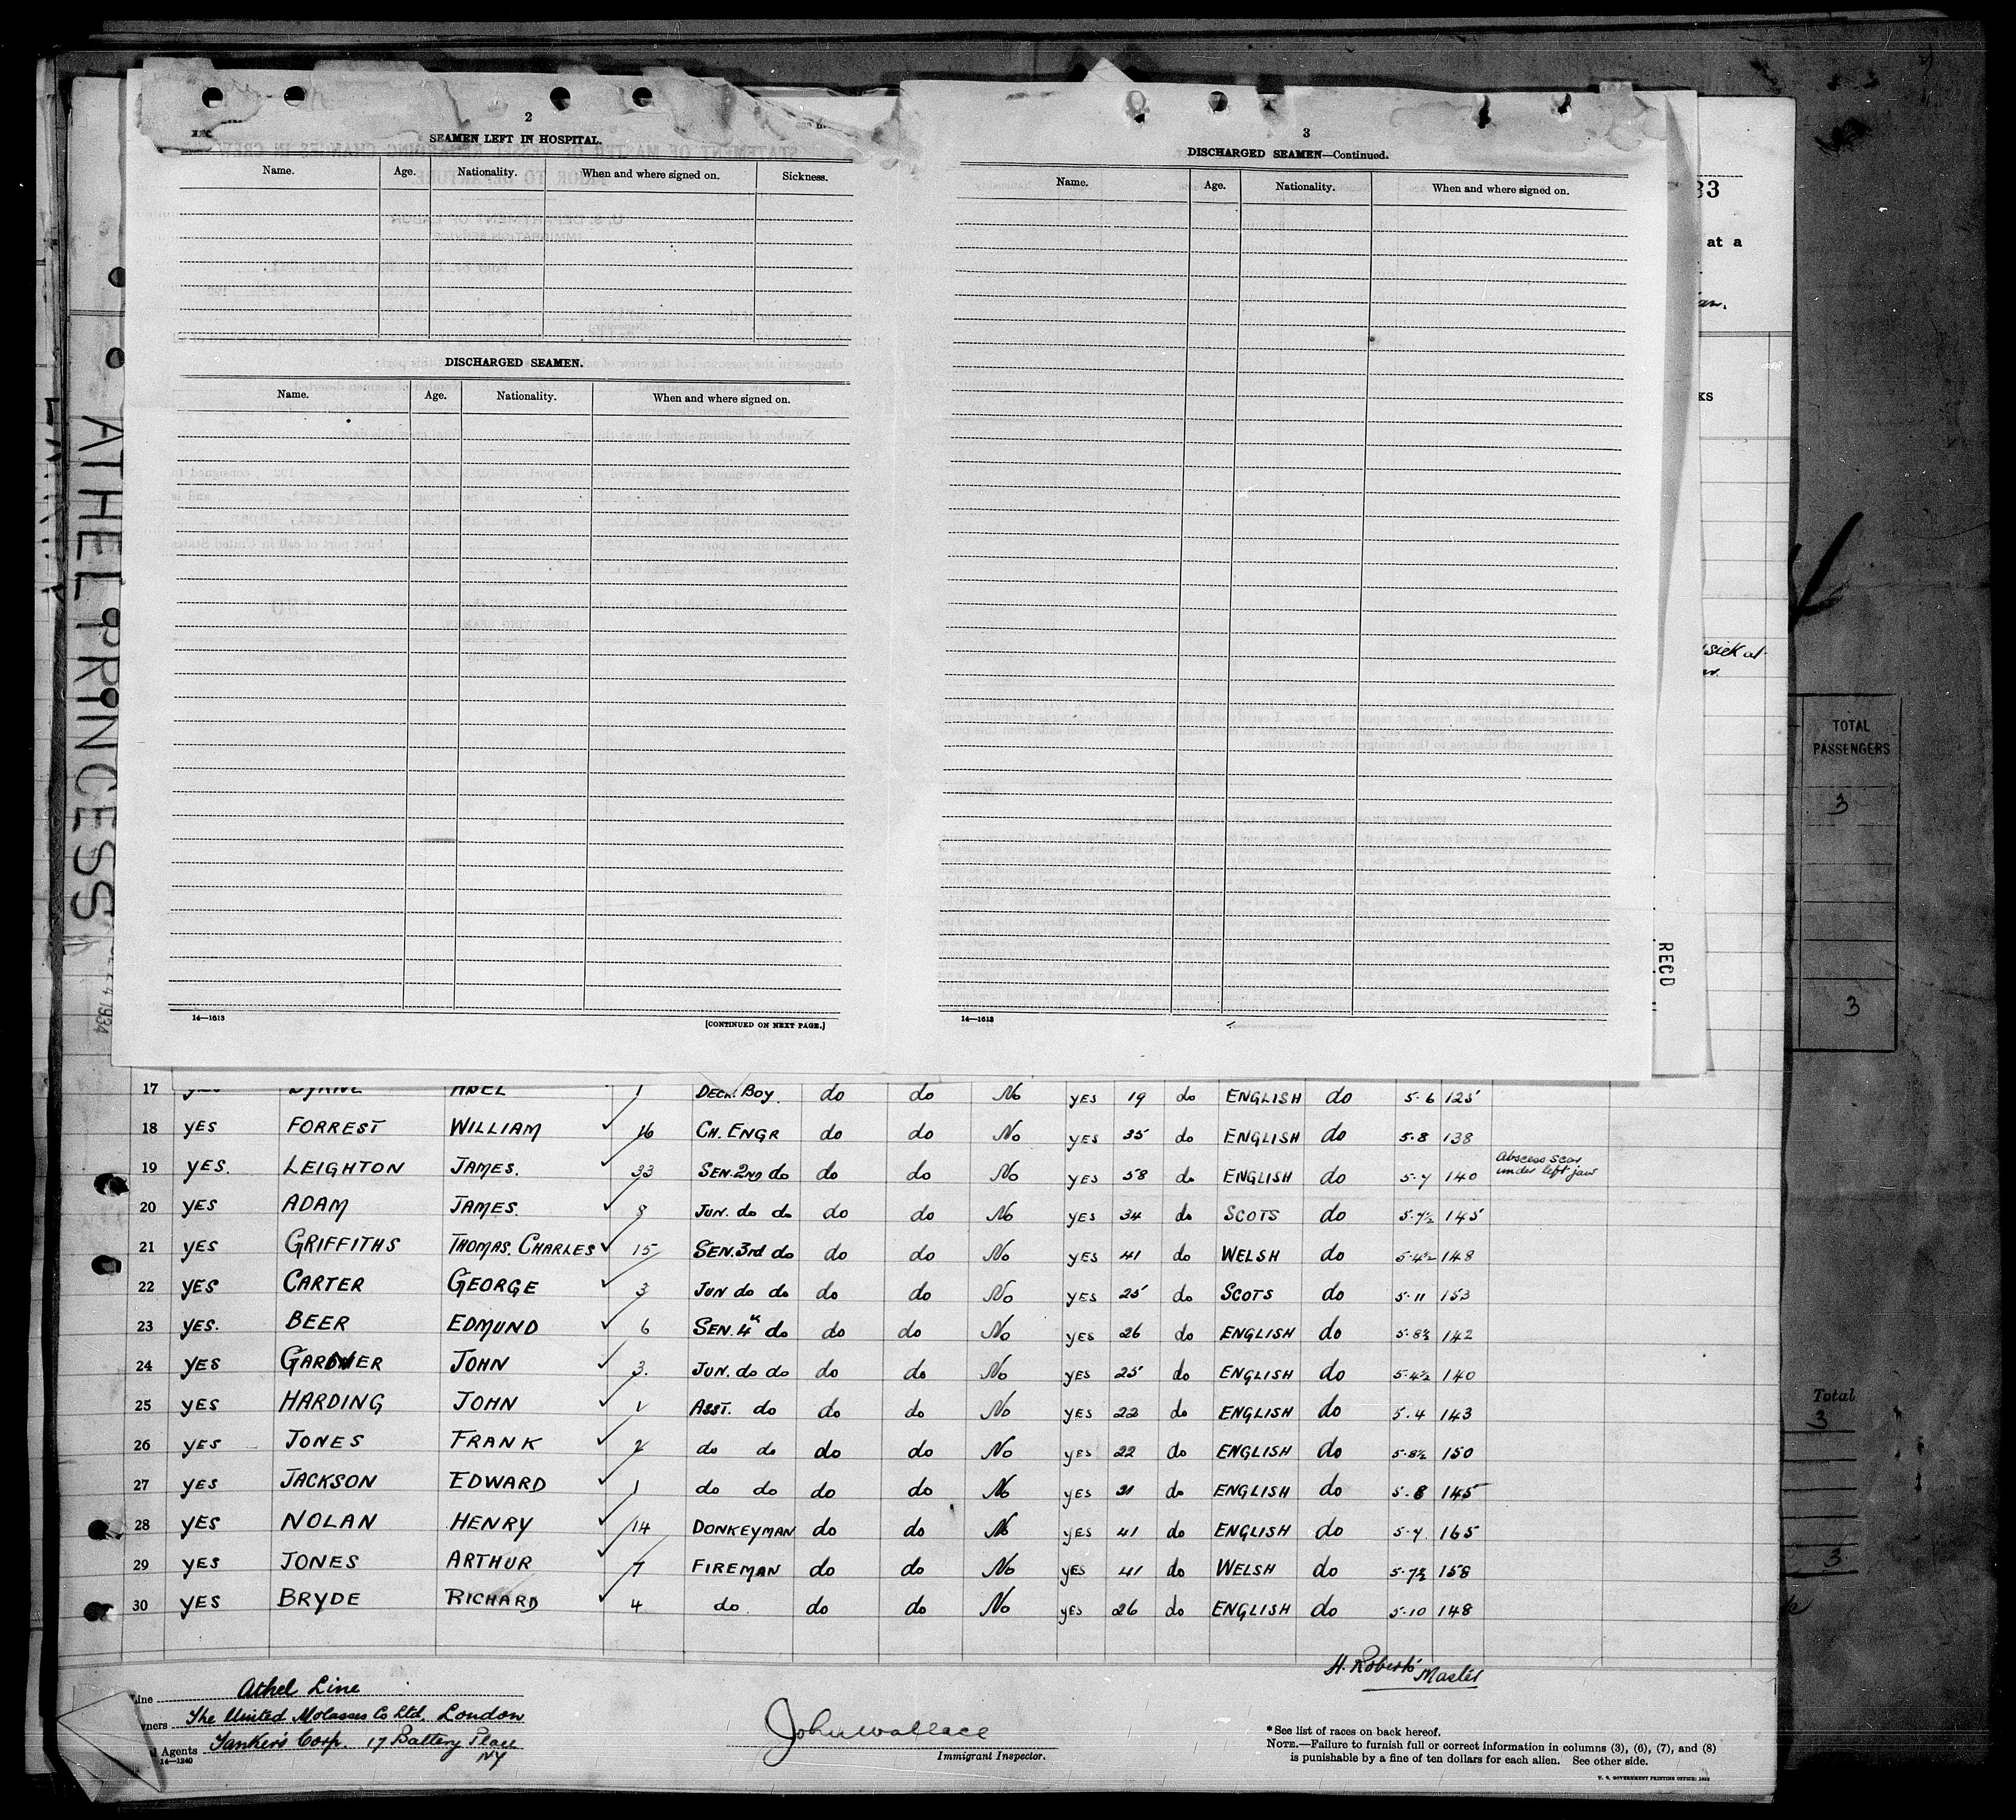 2
SEAMEN LEFT IN HOSPITAL.
Name. Age. Nationality. When and where signed on. Sickness.
DISCHARGED SEAMEN.
Name. Age. Nationality. When and where signed on.
14—1613 [CONTINUED ON NEXT PAGE.]
3
DISCHARGED SEAMEN—Continued.
Name. Age. Nationality. When and where signed on.
14—1613
33
at a
sick at
RECD
ATHELPRINCESS
4 1934
TOTAL
PASSENGERS
3
3
Total
3
3
17 ABEL 1 DECK BOY. do do No yes 19 do ENGLISH do 5-6 125
18 yes FORREST WILLIAM 16 CH. ENGR do do No yes 35 do ENGLISH do 5-8 138
19 yes. LEIGHTON JAMES. 33 SEN. 2ND do do do No yes 58 do ENGLISH do 5-7 140 Abscess scar
under left jaw
20 yes ADAM JAMES. 8 JUN. do do do do No yes 34 do SCOTS do 5-7½ 145
21 yes GRIFFITHS THOMAS. CHARLES 15 SEN. 3rd do do do No yes 41 do WELSH do 5-4½ 148
22 yes CARTER GEORGE 3 JUN do do do do No yes 25 do SCOTS do 5-11 153
23 yes. BEER EDMUND 6 SEN. 4th do do do No yes 26 do ENGLISH do 5-8½ 142
24 yes GARDNER JOHN 3. JUN. do do do do No yes 25 do ENGLISH do 5-4½ 140
25 yes HARDING JOHN 1 ASST. do do do No yes 22 do ENGLISH do 5.4 143
26 yes JONES FRANK 2 do do do do No yes 22 do ENGLISH do 5-8½ 150
27 yes JACKSON EDWARD 1 do do do do No yes 21 do ENGLISH do 5-8 145
28 yes NOLAN HENRY 14 DONKEYMAN do do No yes 41 do ENGLISH do 5-7. 165
29 yes JONES ARTHUR 7 FIREMAN do do No yes 41 do WELSH do 5-7½ 158
30 yes BRYDE RICHARD 4 do. do do No yes 26 do ENGLISH do 5-10 148
H. Roberts Master
Line Athel Line
The United Molasses Co Ltd. London
Agents Tankers Corp. 17 Battery Place
NY
14—1240
John Wallace
Immigrant Inspector.
*See list of races on back hereof.
NOTE.—Failure to furnish full or correct information in columns (3), (6), (7), and (8)
is punishable by a fine of ten dollars for each alien. See other side.
U. S. GOVERNMENT PRINTING OFFICE: 1932